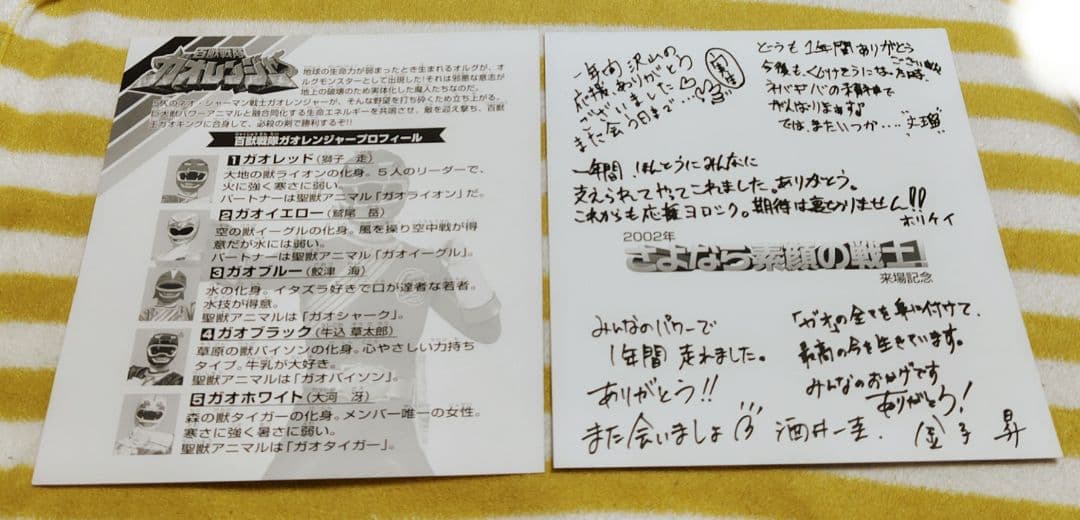 百獣戦隊
ガオレンジャー
地球の生命力が弱まったとき生まれるオルグが、オ
ルグモンスターとして出現した!それは邪悪な意志が
地上の破壊のため実体化した魔人たちなのだ。
5人のネオ・シャーマン戦士ガオレンジャーが、そんな野望を打ち砕くため立ち上がる。
巨大獣パワーアニマルと融合同化する生命エネルギーを共鳴させ、敵を迎え撃ち、百獣
王ガオキングに合身して、必殺の剣で勝利するぞ!!
百獣戦隊ガオレンジャープロフィール
1 ガオレッド(獅子 走)
大地の獣ライオンの化身。5人のリーダーで、
火に強く寒さに弱い。
パートナーは聖獣アニマル「ガオライオン」だ。
2 ガオイエロー(鷲尾 岳)
空の獣イーグルの化身。風を操り空中戦が得
意だが水には弱い。
パートナーは聖獣アニマル「ガオイーグル」。
3 ガオブルー(鮫津 海)
水の化身。イタズラ好きで口が達者な若者。
水技が得意。
聖獣アニマルは「ガオシャーク」。
4 ガオブラック(牛込 草太郎)
草原の獣バイソンの化身。心やさしい力持ち
タイプ。牛乳が大好き。
聖獣アニマルは「ガオバイソン」。
5 ガオホワイト(大河 冴)
森の獣タイガーの化身。メンバー唯一の女性。
寒さに強く暑さに弱い。
聖獣アニマルは「ガオタイガー」。
一年間沢山の
応援ありがとう
ございました
また会う日まで…
どうも1年間ありがとう
ございました
今後も、くじけそうには、
がんばりますよ
では、またいつか‥‥
一年間 ほんとうにみんなに
支えられてやってこれました。ありがとう。
これからも応援ヨロシク。期待は裏切りません!!
ホリケイ
2002年
さよなら素顔の戦士!
来場記念
みんなのパワーで
1年間 走れました。
ありがとう!!
また会いましょう
酒井一圭.
「ガオ」の全てを身に付けて、
最高の今を生きています。
みんなのおかげです
ありがとう!
金子 昇